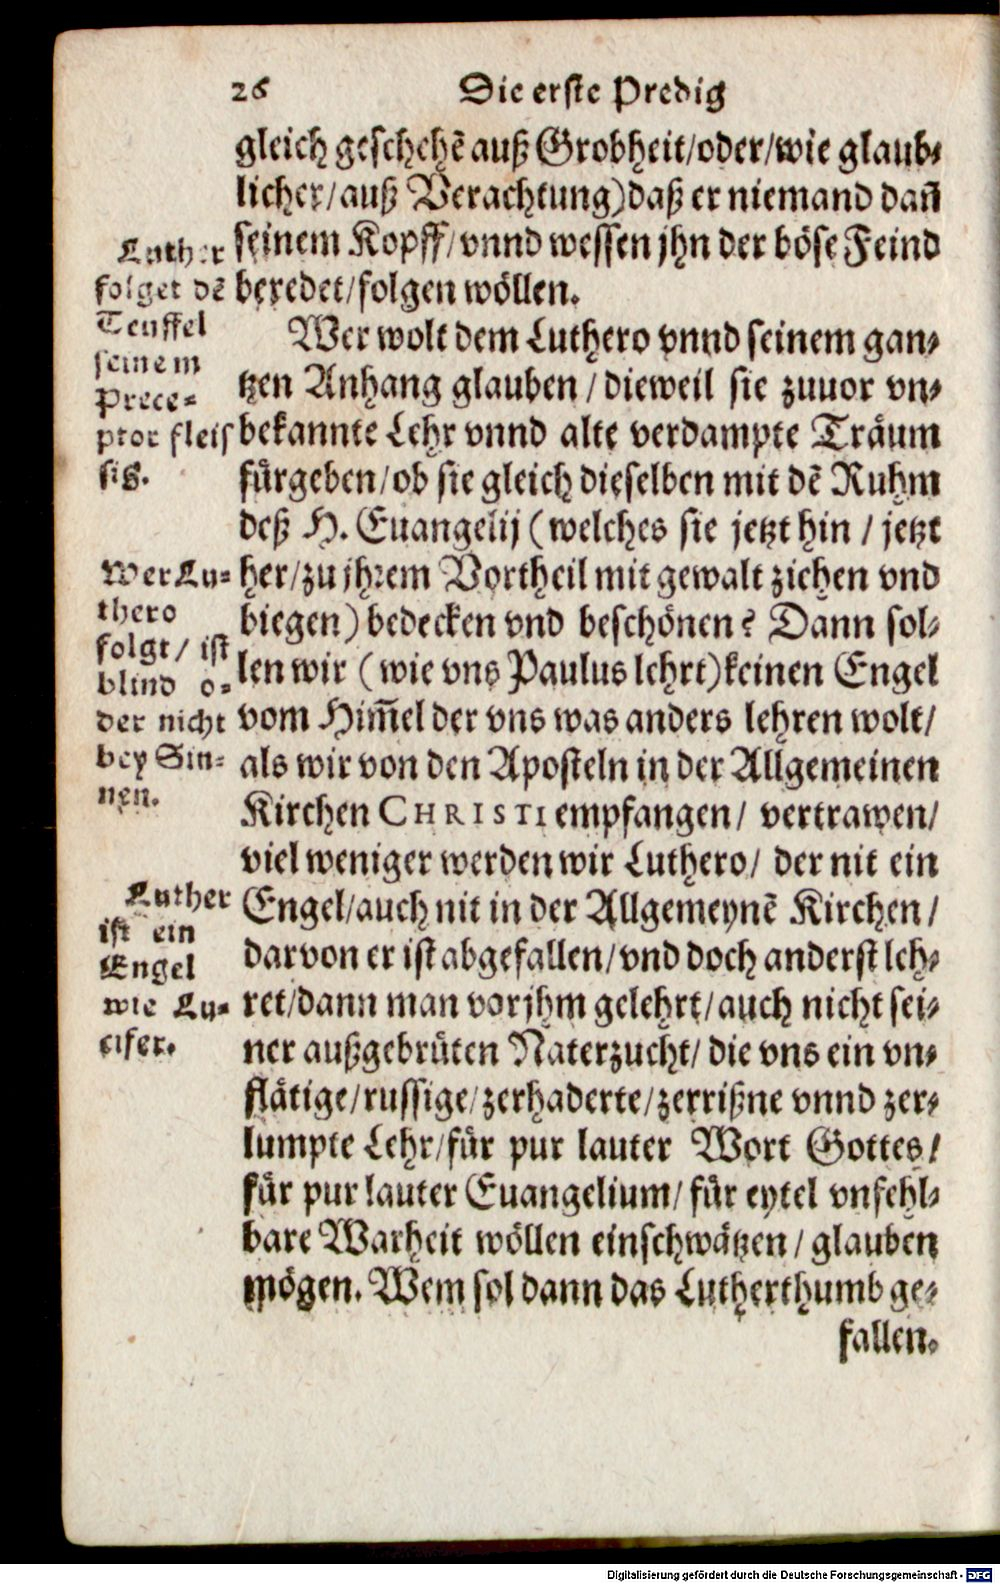 26 Die erste Predig
gleich geschehẽ auß Grobheit/oder/wie glaub-
licher/auß Verachtung) daß er niemand dañ
seinem Kopff/vnnd wessen jhn der böse Feind
beredet/folgen wöllen.
Wer wolt dem Luthero vnnd seinem gan-
tzen Anhang glauben / dieweil sie zuuor vn-
bekannte Lehr vnnd alte verdampte Träum
fürgeben/ob sie gleich dieselben mit dẽ Ruhm
deß H. Euangelij (welches sie jetzt hin / jetzt
her/zu jhrem Vortheil mit gewalt ziehen vnd
biegen) bedecken vnd beschönen? Dann sol-
len wir (wie vns Paulus lehrt) keinen Engel
vom Him̃el der vns was anders lehren wolt/
als wir von den Aposteln in der Allgemeinen
Kirchen CHRISTI empfangen/ vertrawen/
viel weniger werden wir Luthero/ der nit ein
Engel/auch nit in der Allgemeynẽ Kirchen /
darvon er ist abgefallen/vnd doch anderst leh-
ret/dann man vor jhm gelehrt/auch nicht sei-
ner außgebrüten Naterzucht/ die vns ein vn-
flätige/russige/zerhaderte/zerrißne vnnd zer-
lumpte Lehr/für pur lauter Wort Gottes/
für pur lauter Euangelium/ für eytel vnfehl-
bare Warheit wöllen einschwätzen / glauben
mögen. Wem sol dann das Lutherthumb ge-
fallen.
Luther
folget dẽ
Teuffel
seinem
Prece-
ptor fleis
sig.
Wer Lu-
thero
folgt/ ist
blind o-
der nicht
bey Sin-
nen.
Luther
ist ein
Engel
wie Lu-
cifer.
Digitalisierung gefördert durch die Deutsche Forschungsgemeinschaft - DFG